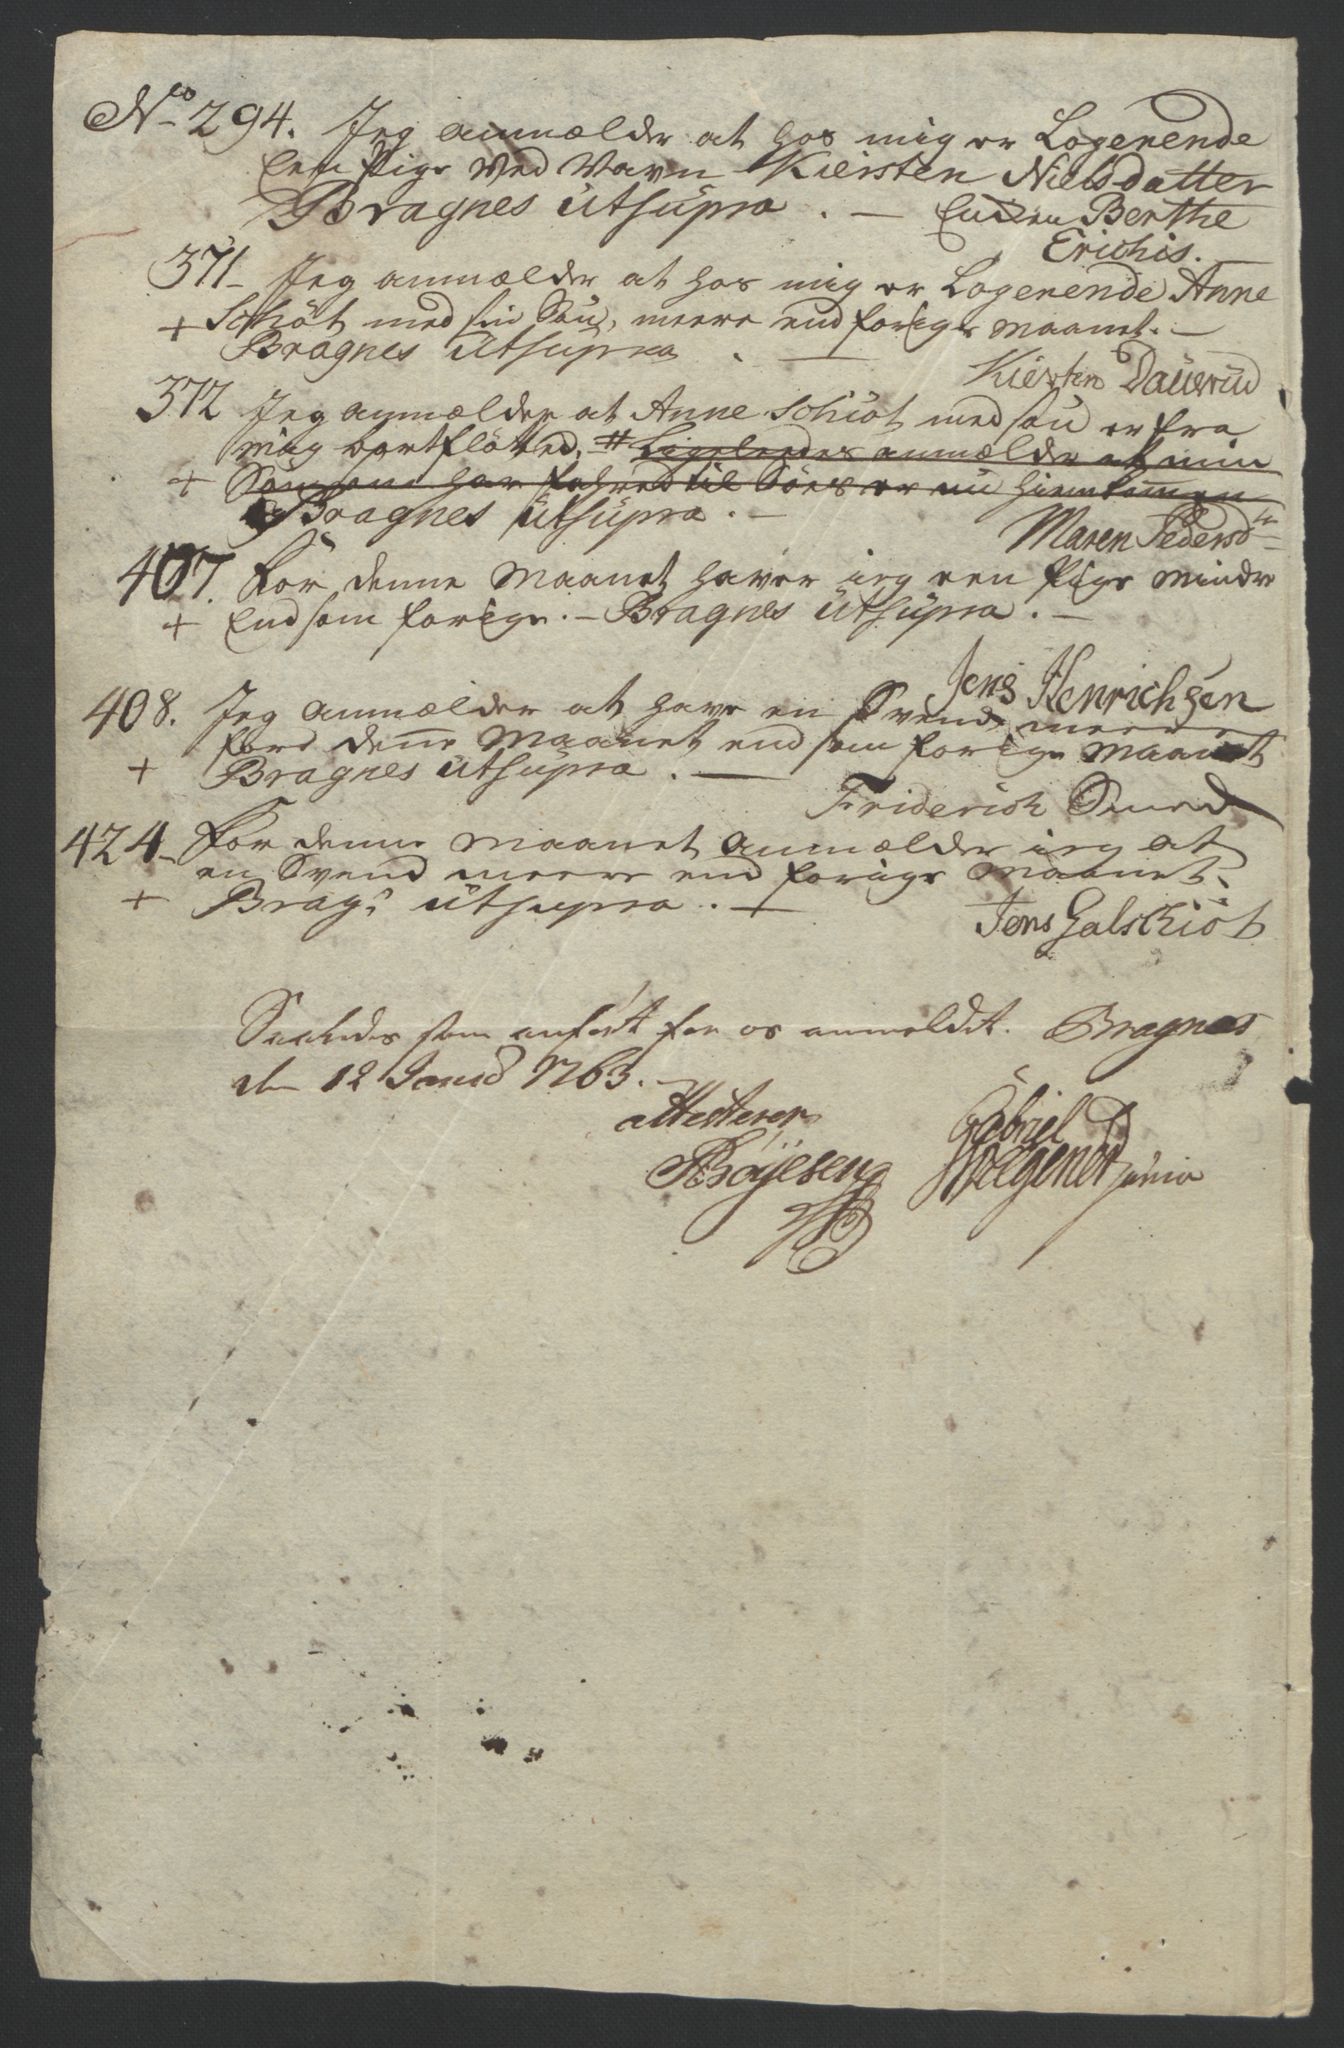 No 294. Jeg anmælder at hos mig er Logerende
Een Pige ved Navn Kiersten Nielsdatter
Bragnes utsupra. — Berthe
Erichis.
371 — Jeg anmælder at hos mig er Logerende Anne
+ Schöt med sin Søn, meere end forige Maanet. —
Bragnes utsupra. —
Kiersten Dauerud
372 Jeg anmælder at Anne Schiöt med søn er fra
mig bortfløtted, # Ligeleedes anmælder at min
+ Søn som har fahred til Søes er nu hiemkommen
Bragnes utsupra. —
Maren Pedersdtr
407. For denne Maanet haver ieg een Pige mindre
+ End som forige. — Bragnes utsupra. —
Jens Henrichsen
408. Jeg anmælder at have en Svend meere
fore denne Maanet end som forige Maanet
+ Bragnes utsupra. —
Friderich Smed
424 — For denne Maanet anmælder ieg at
en Svend meere end forige Maanet.
+ Brags utsupra. —
Jens Galschiöt
Saaledes som anført for os anmeldet. Bragnes
den 12 Junii 1763. —
Attesterer
Böyesen Gabriel
Wægener junior